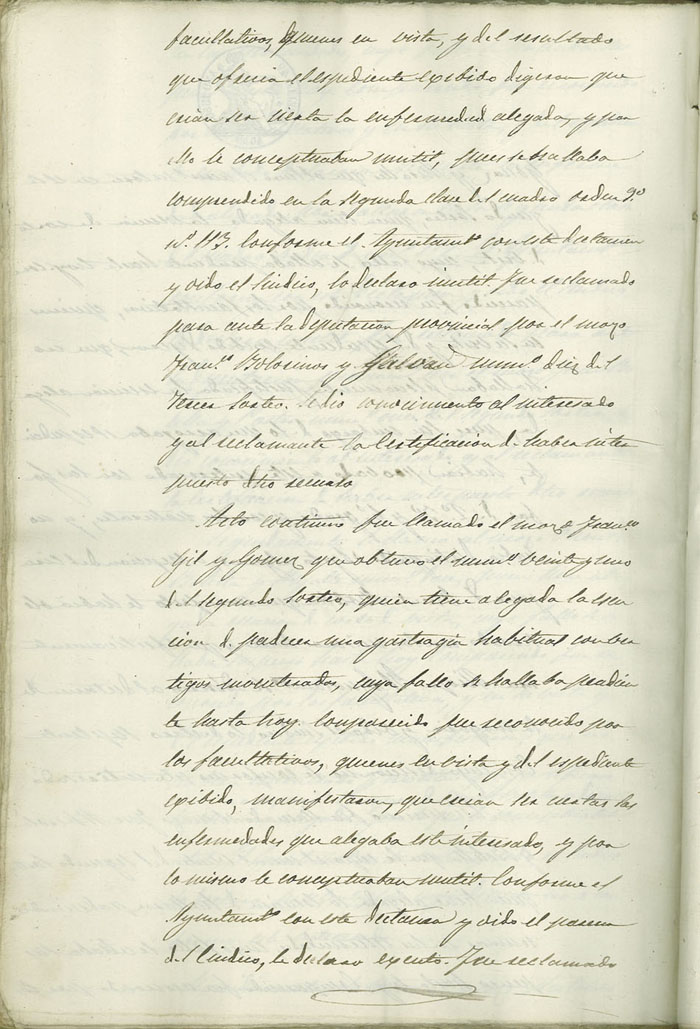 facultativos, quienes en vista, y del resultado
que ofrecia el espediente exibido digeron que
creian ser cierta la enfermedad alegada, y por
ello le conceptuaban inutil, pues se hallaba
comprendido en la segunda clase del cuadro orden 9º
nº 113. Conforme el Ayuntamtº con este dictamen
y oido el Sindico, lo declaro inutil. Fue reclamado
para ante la deputacion provincial por el mozo
Franº Bolosinos y Galvan numº diez del
tercer sorteo. Se dio conocimiento al interesado
y al reclamante la certificacion de haber inter
puesto dho recurso
Acto continuo fue llamado el mozo Franº
Gil y Gomez que obtuvo el numº veinte y uno
del segundo sorteo, quien tiene alegada la esen
cion de padecer una gastragia habitual con
tigos inveterados, cuyo fallo se hallaba pendien
te hasta hoy. Comparecido fue reconocido por
los facultativos, quienes en vista y del espediente
exibido, manifestaron, que creian ser ciertas las
enfermedades que alegaba este interesado, y por
lo mismo le conceptuaban inutil. Conforme el
Ayuntamtº con este dictamen y oido el parecer
del Sindico, le declaro exento. Fue reclamado